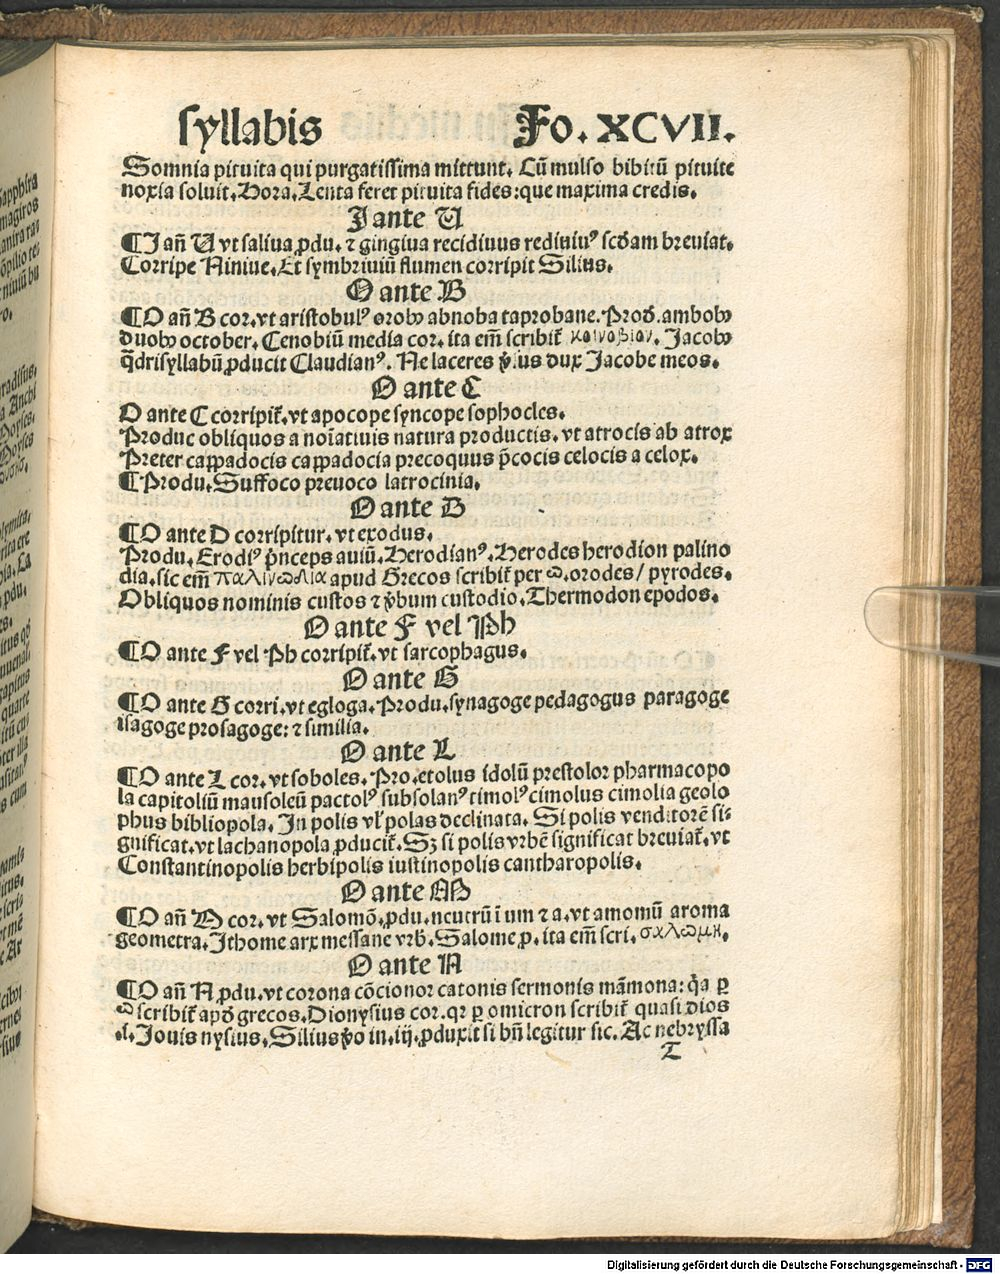 ſyllabis Fo. XCVII.
Somnia pituita qui purgatiſſima mittunt. Cū mulſo bibitū pituite
noxia ſoluit. Hora. Lenta feret pituita fides: que maxima credis.
I ante U
¶I an̄ U vt ſaliua ꝓdu. ⁊ gingiua recidiuus rediuiuꝰ ſcd̄am breuiat.
Corripe Niniue. Et ſymbriuiū flumen corripit Silius.
O ante B
¶O an̄ B cor. vt ariſtobulꝰ abnoba taprobane. Prod. ambobꝰ
duobꝰ october. Cenobiū media cor. ita em̄ ſcribit̄ κοινοβιον. Jacobꝰ
q̄driſyllabū ꝓducit Claudianꝰ. Ne laceres dux Jacobe meos.
O ante C
O ante C corripit̄. vt apocope ſyncope ſophocles.
Produc obliquos a noīatiuis natura productis. vt atrocis ab atrox
Preter cappadocis cappadocia precoquus p̄cocis celocis a celox.
¶Produ. Suffoco preuoco latrocinia.
O ante D
¶O ante D corripitur. vt exodus.
Produ. Erodiꝰ p̄nceps auiū. Herodianꝰ. Herodes herodion palino
dia. ſic em̄ παλινωδια apud Grecos ſcribit̄ per ω. orodes / pyrodes.
Obliquos nominis cuſtos ⁊ v̄bum cuſtodio. Thermodon epodos.
O ante F vel Ph
¶O ante F vel Ph corripit̄. vt ſarcophagus.
O ante G
¶O ante G corri. vt egloga. Produ. ſynagoge pedagogus paragoge
iſagoge proſagoge: ⁊ ſimilia.
O ante L
¶O ante L cor. vt ſoboles. Pro. etolus idolū preſtolor pharmacopo
la capitoliū mauſoleū pactolꝰ ſubſolanꝰ timolꝰ cimolus cimolia geolo
phus bibliopola. In polis vl̄ polas declinata. Si polis venditorē ſi-
gnificat. vt lachanopola ꝓducit̄. Sꝫ ſi polis vrbē ſignificat breuiat̄. vt
Conſtantinopolis herbipolis iuſtinopolis cantharopolis.
O ante M
¶O an̄ M cor. vt Salomō. ꝓdu. neutrū ī um ⁊ a. vt amomū aroma
geometra. Ithome arx meſſane vrb̄. Salome ꝓ. ita em̄ ſcri. σαλωμη.
O ante N
¶O an̄ N ꝓdu. vt corona cōcionor catonis ſermonis māmona: q̄a ꝑ
ω ſcribit̄ apd̄ grecos. Dionyſius cor. qꝛ ꝑ omicron ſcribit̄ quaſi dios
.ſ. Jouis nyſius. Silius v̄o in .iij. ꝓduxit ſi bn̄ legitur ſic. Ac nebryſſa
T
ſapphira
magiros
radiſus.
Moyſes.
Moyſes
Digitalisierung gefördert durch die Deutsche Forschungsgemeinschaft - DFG